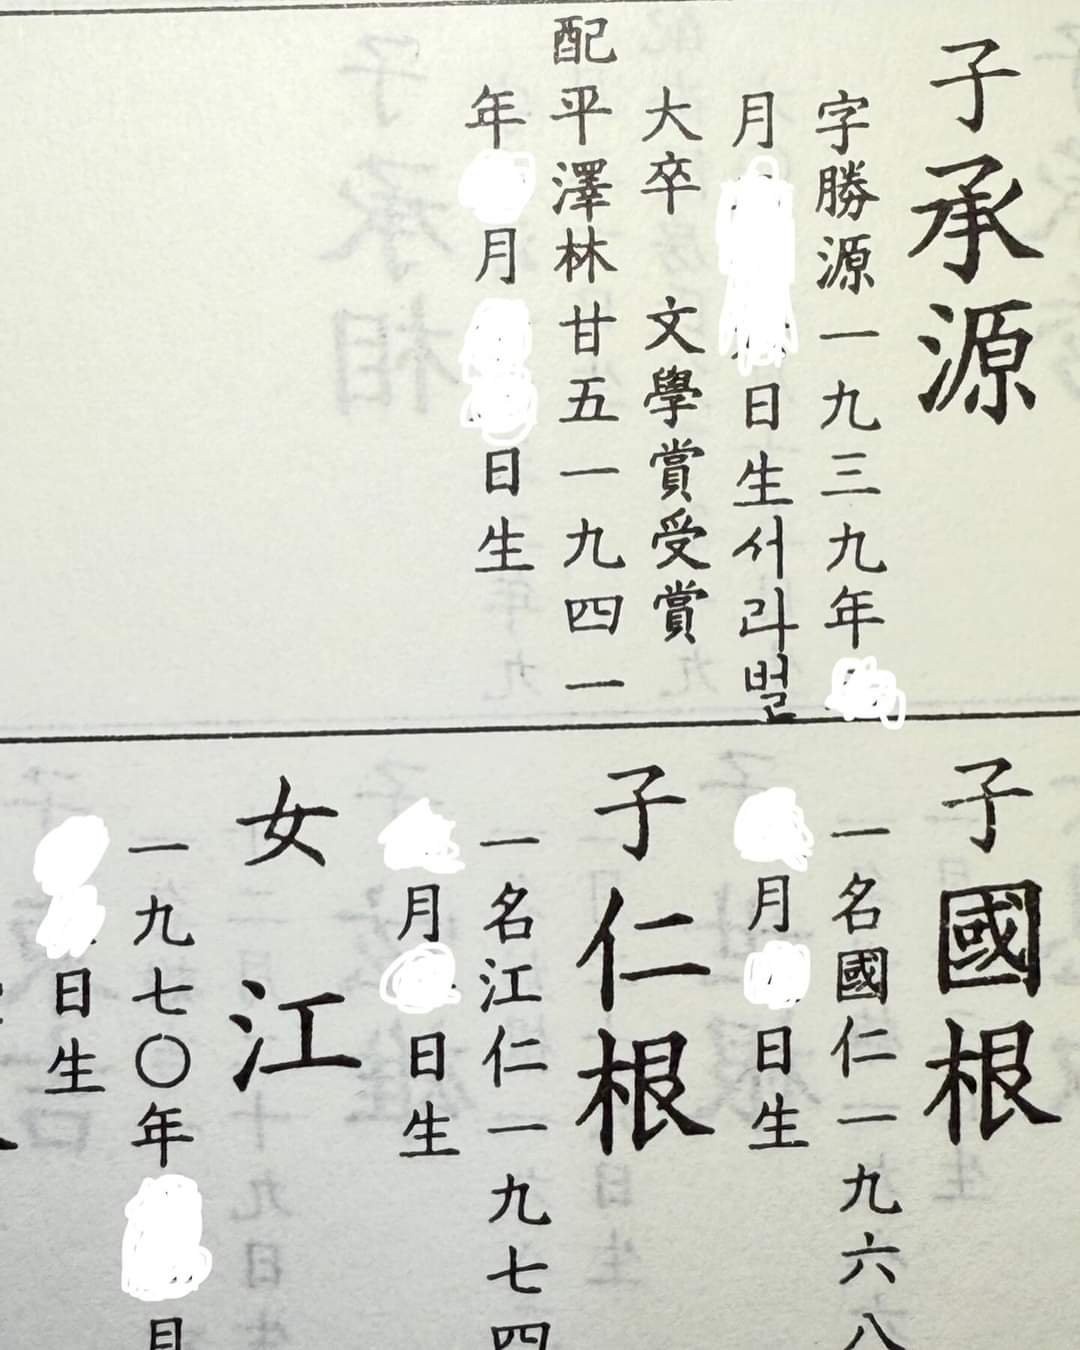 子承源
字勝源一九三九年
月日生서라벌
大卒 文學賞受賞
配平澤林甘五一九四一
年月日生
子國根
一名國仁一九六八
月日生
子仁根
一名江仁一九七四
月日生
女江
一九七〇年月
日生